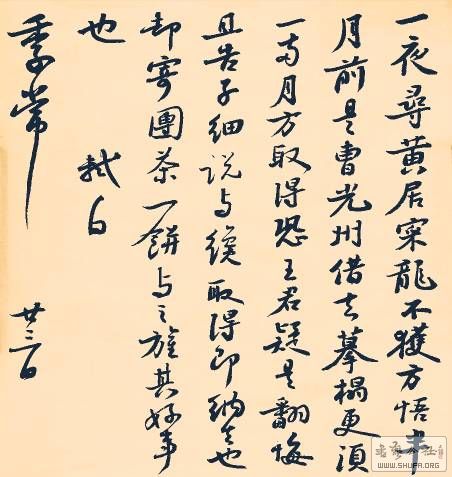 一夜尋黃居寀龍不獲方悟半
月前是曹光州借去摹搨更須
一兩月方取得恐王君疑是翻悔
且告子細說與纔取得即納去也
卻寄團茶一餅與之旌其好事
也 軾白
季常
廿三日
WWW.SHUFA.ORG